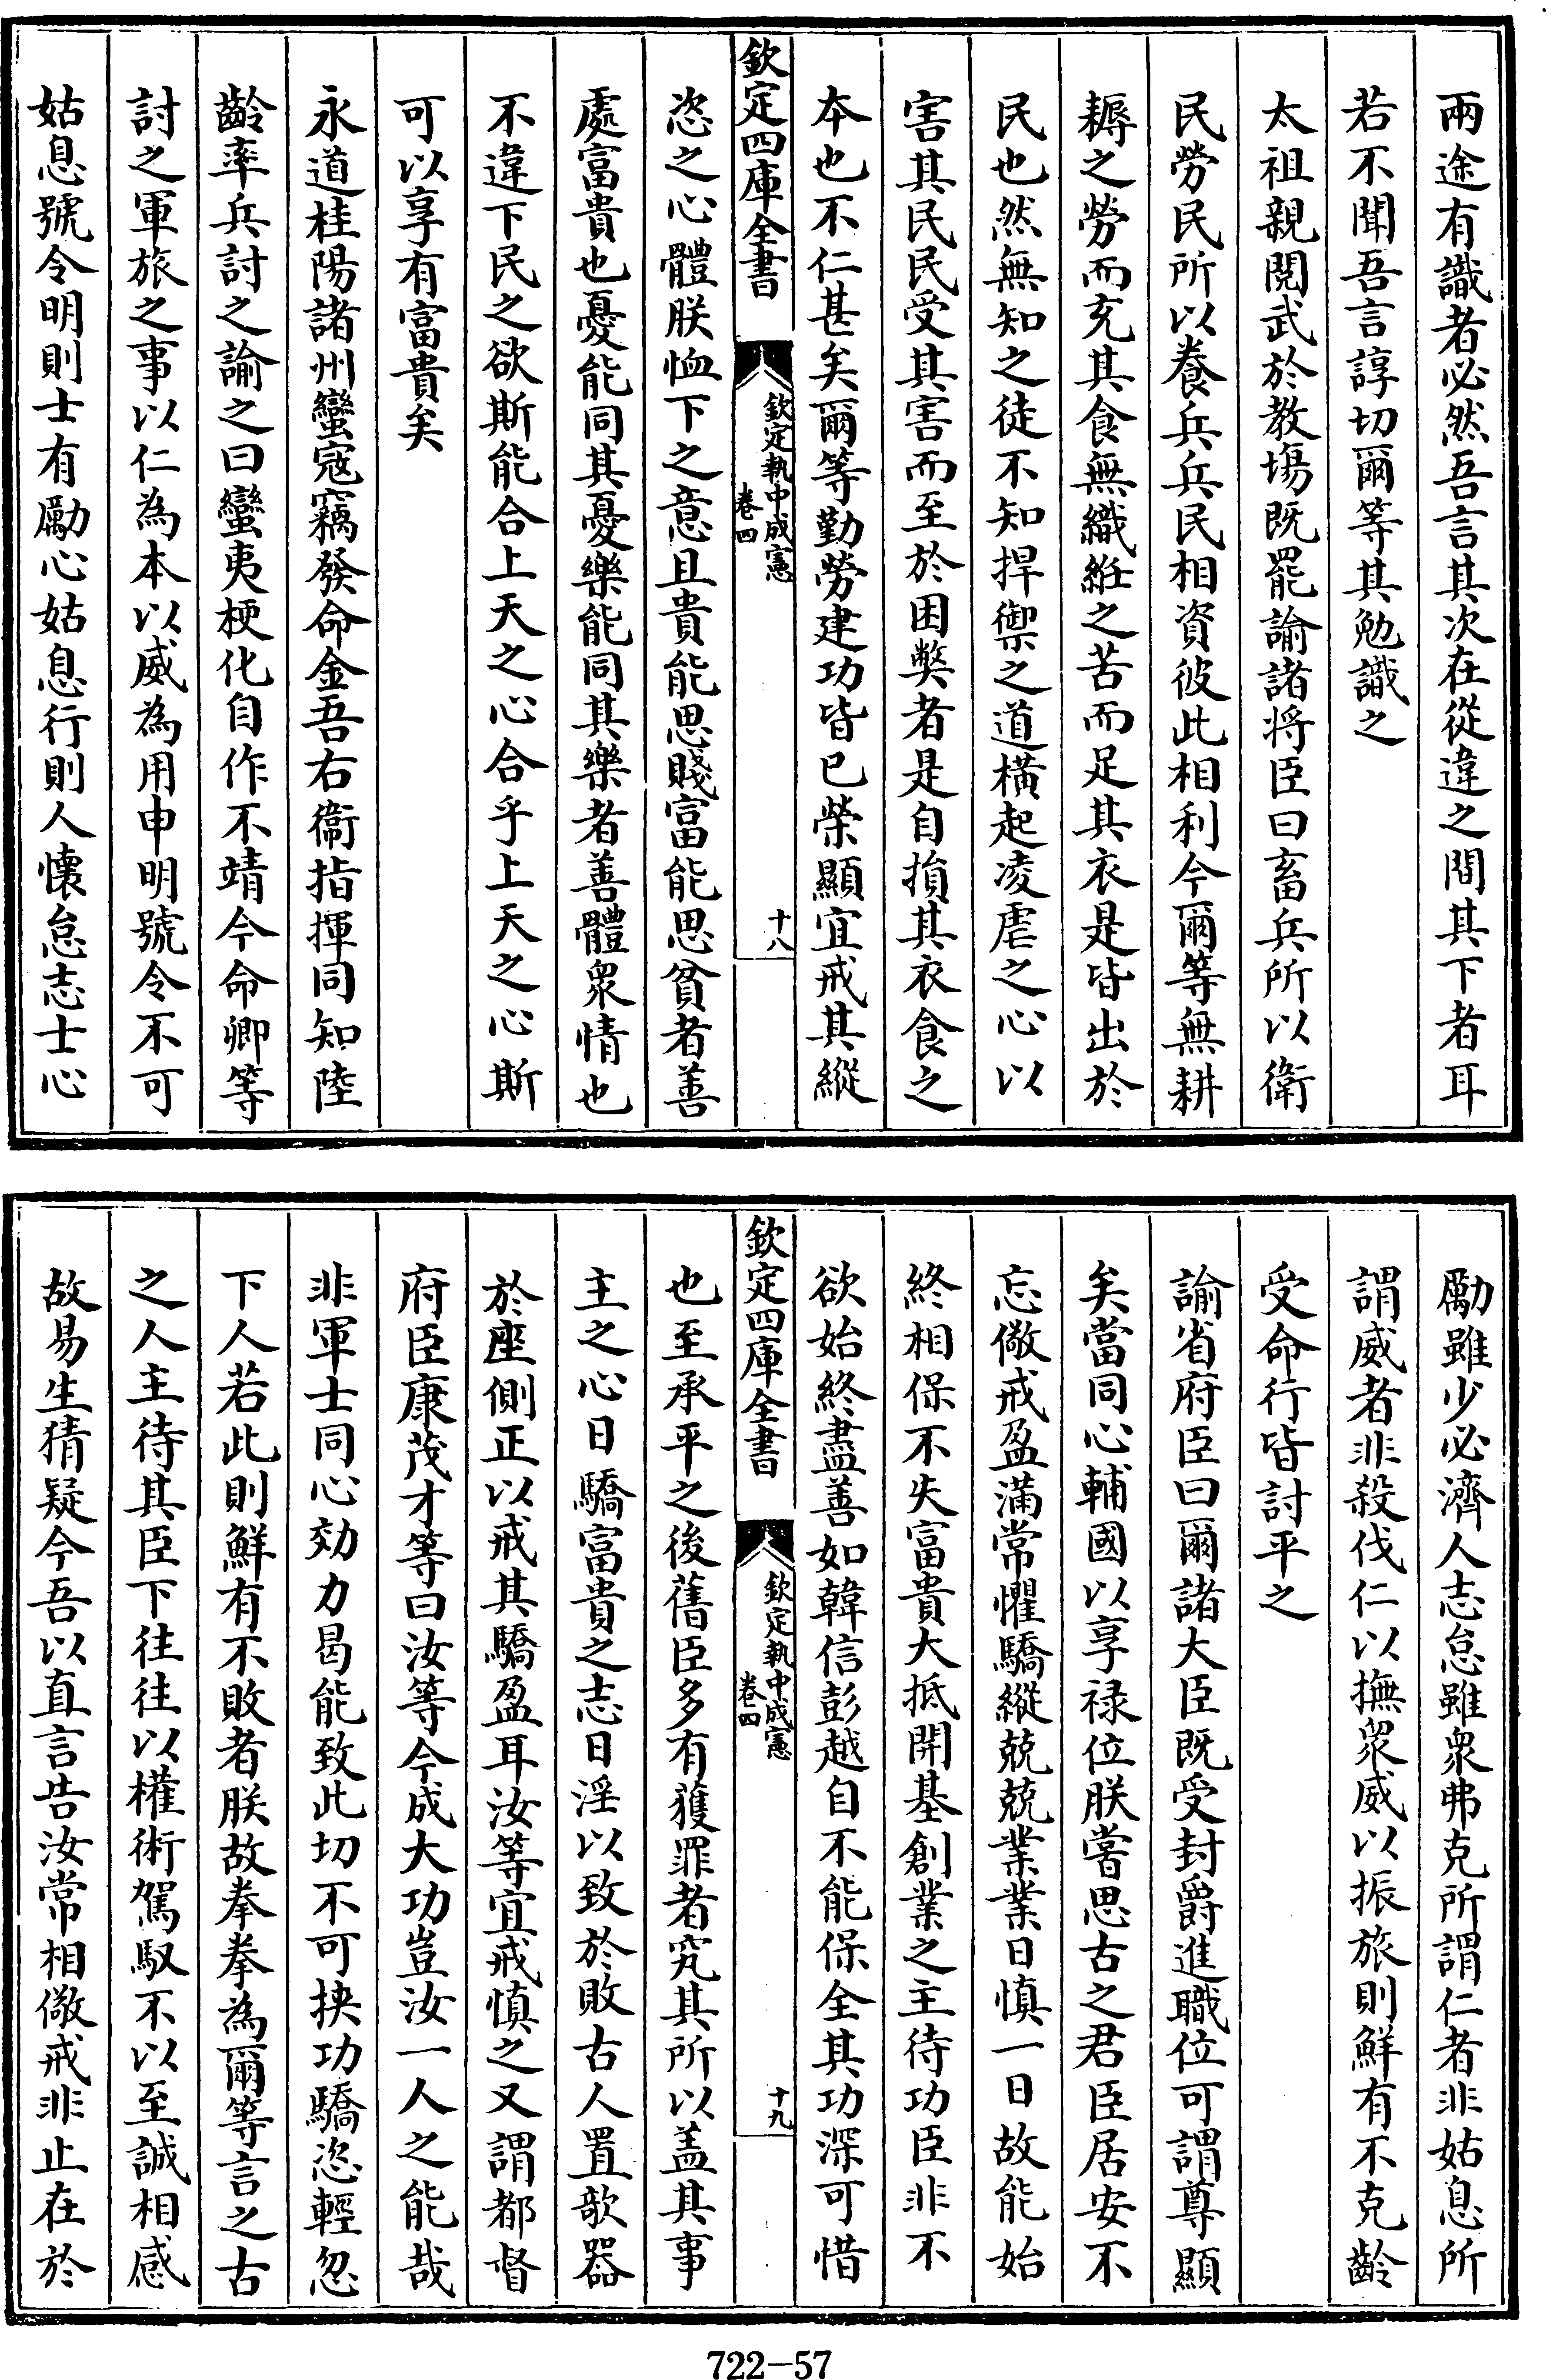 兩途有識者必然吾言其次在從違之間其下者耳
若不聞吾言諄切爾等其勉識之
太祖親閱武於教場既罷諭諸将臣曰畜兵所以衛
民勞民所以養兵兵民相資彼此相利今爾等無耕
耨之勞而充其食無織絍之苦而足其衣是皆出於
民也然無知之徒不知捍禦之道橫起凌虐之心以
害其民民受其害而至於困獘者是自損其衣食之
本也不仁甚矣爾等勤勞建功皆已榮顯宜戒其縱
欽定四庫全書
欽定執中成憲
卷四
十八
恣之心體朕恤下之意且貴能思賤富能思貧者善
處富貴也憂能同其憂樂能同其樂者善體衆情也
不違下民之欲斯能合上天之心合乎上天之心斯
可以享有富貴矣
永道桂陽諸州蠻宼竊發命金吾右衛指揮同知陸
齡率兵討之諭之曰蠻夷梗化自作不靖今命卿等
討之軍旅之事以仁為本以威為用申明號令不可
姑息號令明則士有勵心姑息行則人懷怠志士心
勵雖少必濟人志怠雖衆弗克所謂仁者非姑息所
謂威者非殺伐仁以撫衆威以振旅則鮮有不克齡
受命行皆討平之
諭省府臣曰爾諸大臣既受封爵進職位可謂尊顯
矣當同心輔國以享禄位朕嘗思古之君臣居安不
忘儆戒盈滿常懼驕縱兢兢業業日慎一日故能始
終相保不失富貴大抵開基創業之主待功臣非不
欲始終盡善如韓信彭越自不能保全其功深可惜
欽定四庫全書
欽定執中成憲
卷四
十九
也至承平之後舊臣多有獲罪者究其所以盖其事
主之心日驕富貴之志日淫以致於敗古人置欹器
於座側正以戒其驕盈耳汝等宜戒慎之又謂都督
府臣康茂才等曰汝等今成大功豈汝一人之能哉
非軍士同心効力曷能致此切不可挾功驕恣輕忽
下人若此則鮮有不敗者朕故拳拳為爾等言之古
之人主待其臣下往往以權術駕馭不以至誠相感
故易生猜疑今吾以直言告汝常相儆戒非止在於
722-57